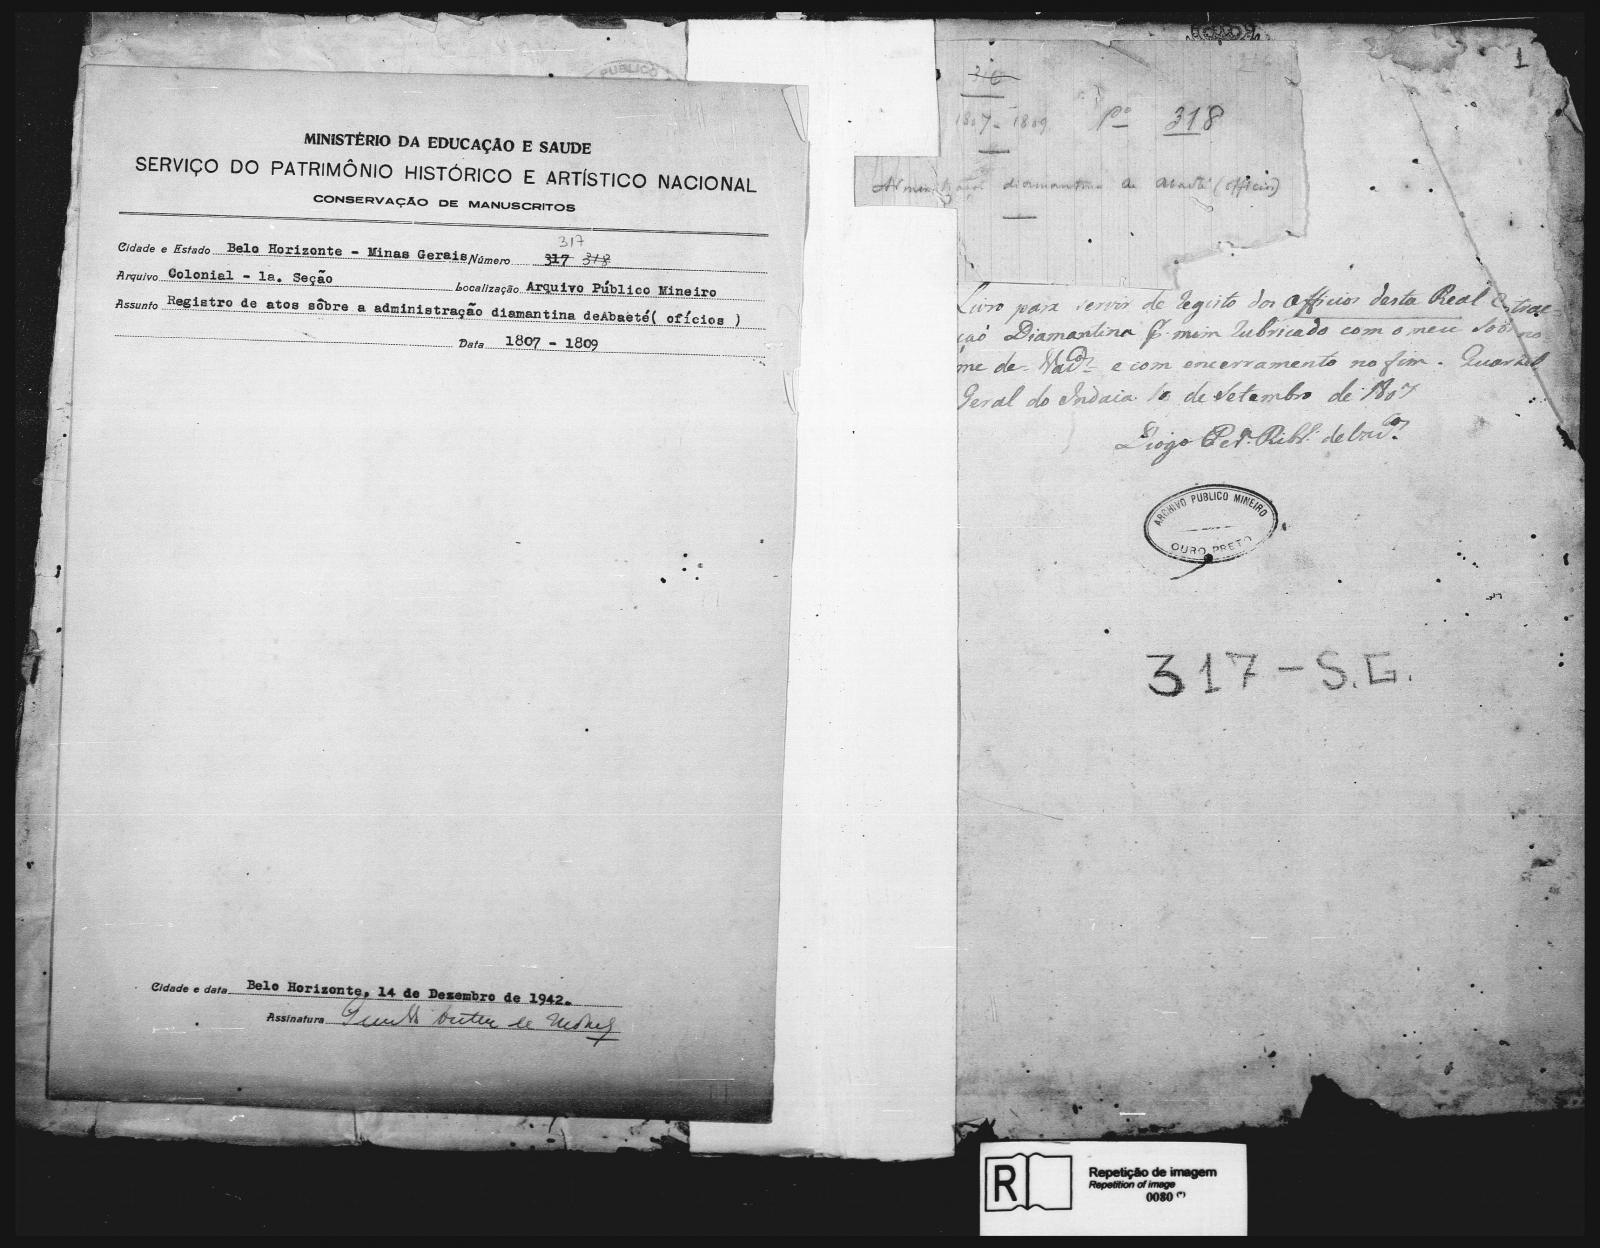 PUBLICO
MINISTÉRIO DA EDUCAÇÃO E SAUDE
SERVIÇO DO PATRIMÔNIO HISTÓRICO E ARTÍSTICO NACIONAL
CONSERVAÇÃO DE MANUSCRITOS
317
Cidade e Estado Belo Horizonte - Minas Gerais Número 317 318
Arquivo Colonial - 1a. Seção Localização Arquivo Público Mineiro
Assunto Registro de atos sôbre a administração diamantina deAbaeté( ofícios )
Data 1807 - 1809
Cidade e data Belo Horizonte, 14 de Dezembro de 1942.
Assinatura
1
316
1807 - 1809 Pº 318
diamantina de Abaeté (officios)
Livro para servir de Registo dos officios desta Real Extrac-
çaõ Diamantina p. mim rubricado com o meu Sobreno-
me de - Vasc.os - e com encerramento no fim. Quartel
Geral do Indaia 10 de Setembro de 1807
Diogo Per.a Ribr.o de Vasc.os
ARCHIVO PUBLICO MINEIRO
OURO PRETO
317 - S.G.
R
Repetição de imagem
Repetition of image
0080 (*)